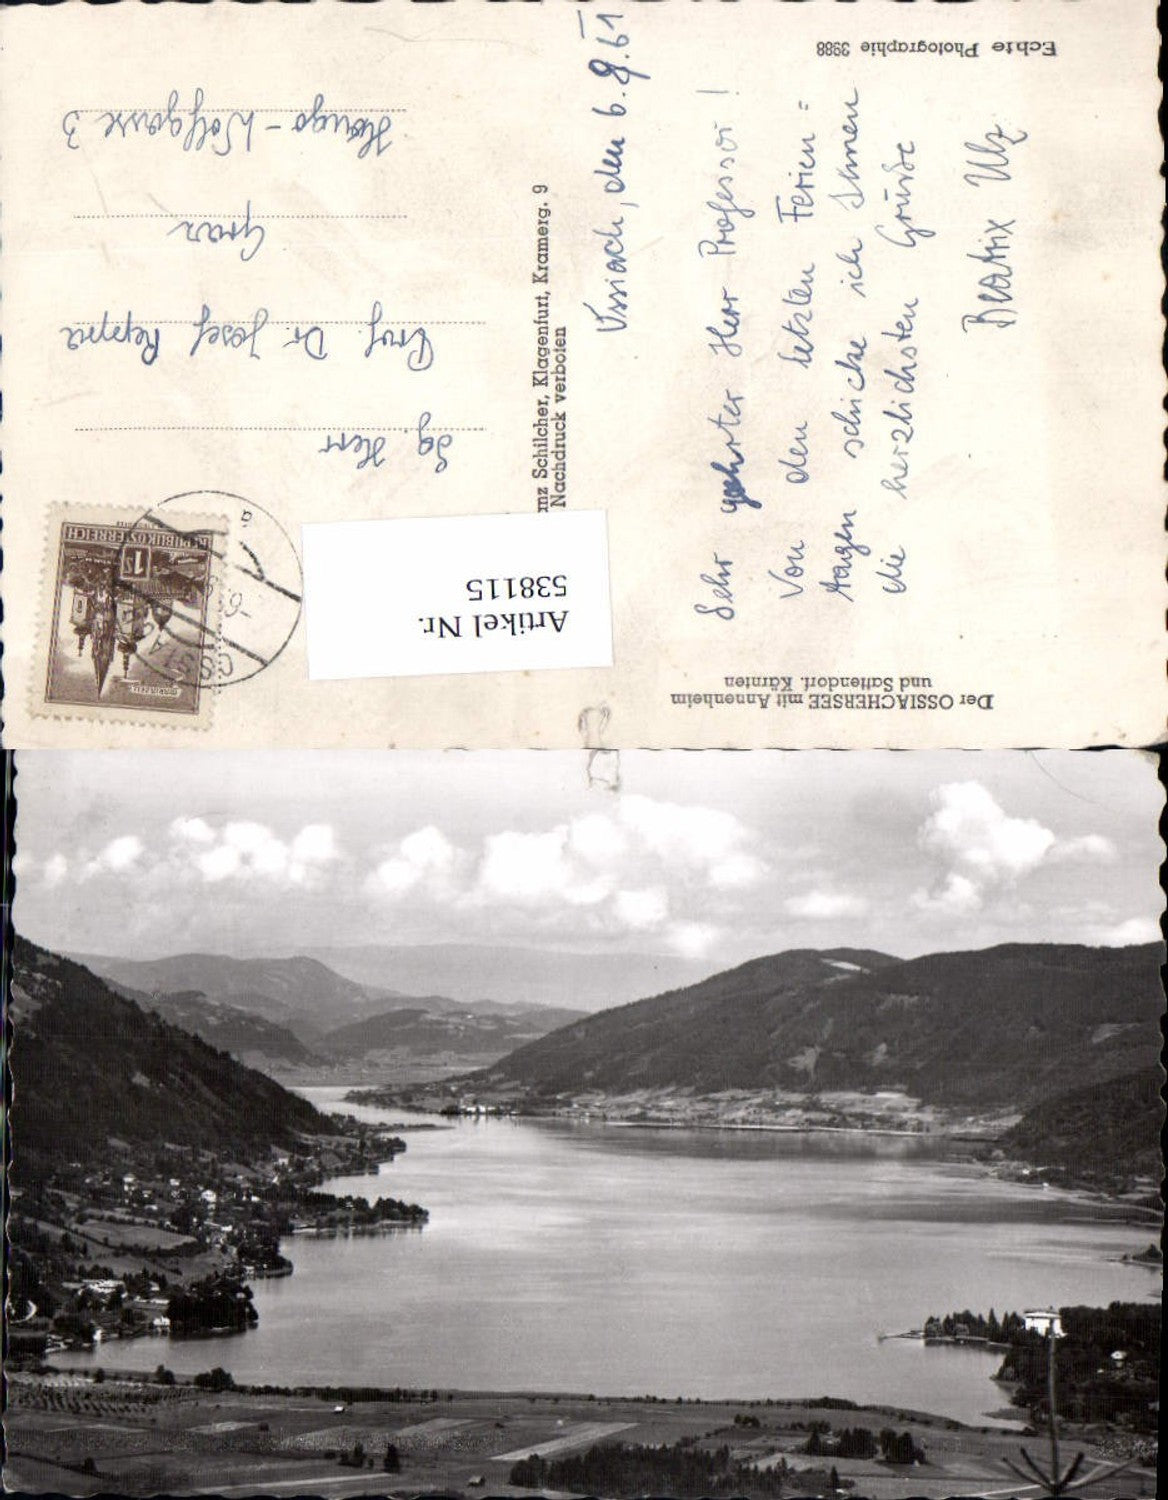 Der OSSIACHERSEE mit Annenheim
und Sattendorf. Kärnten
Ossiach, den 6.9.61
Sehr geehrter Herr Professor!
Von den letzten Ferien=
tagen schicke ich Ihnen
die herzlichsten Grüße
Beatrix Ulz
Echte Photographie 3988
anz Schilcher, Klagenfurt, Kramerg. 9
Nachdruck verboten
REPUBLIK ÖSTERREICH
1S
MARIAZELL
Sg. Herr
Prof. Dr. Josef Reppa
Graz
Hugo-Wolfgasse 3
Artikel Nr.
538115